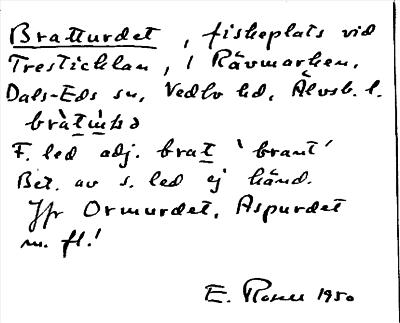 Bratturdet, fiskeplats vid
Tresticklan, i Rävmarken,
Dals-Eds sn, Vedbo hd, Älvsb. l.
F. led adj. brat 'brant'
Bet. av s. led ej känd.
Jfr Ormurdet, Aspurdet
m. fl.!
E. Rosell 1950